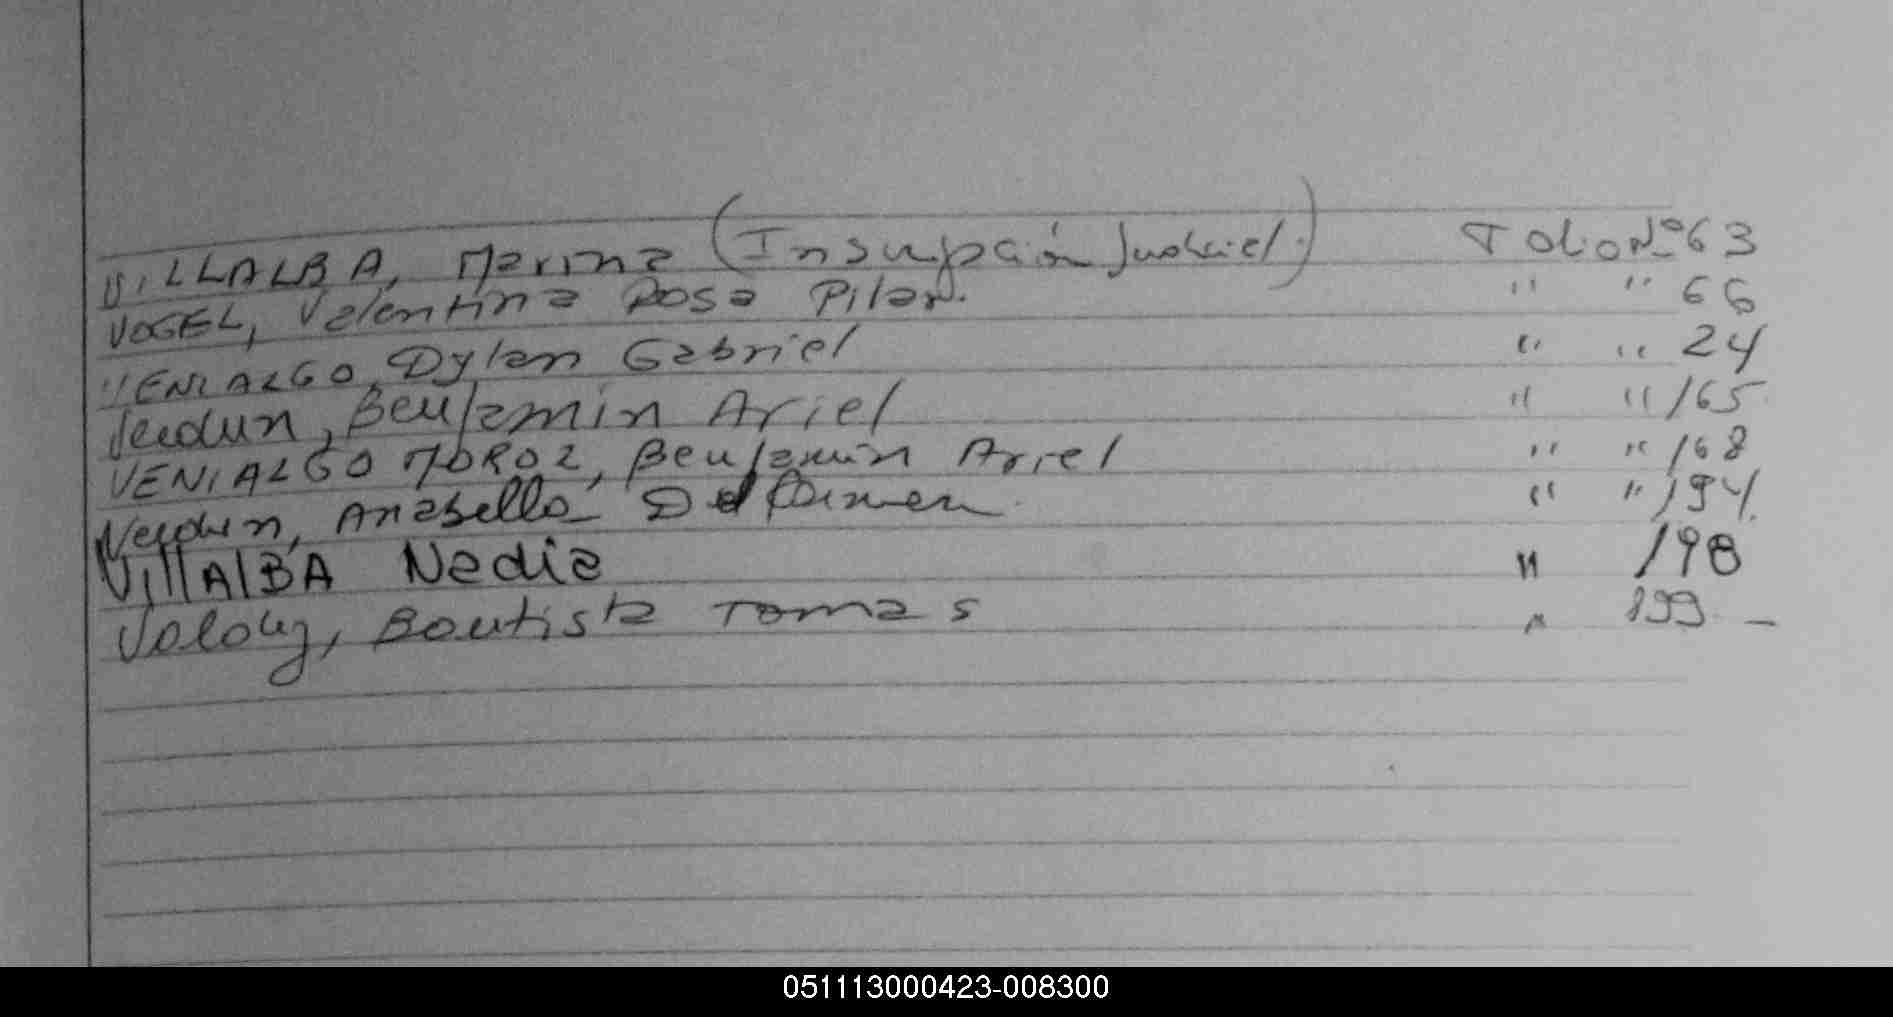 VILLALBA, Marina (Inscripción Judicial.) Folio Nº 63
VOGEL, Valentina Rosa Pilar. " " 66
VENIALGO, Dylan Gabriel " " 24
Verdun, Benjamin Ariel " " 165
VENIALGO MOROZ, Benjamin Ariel " " 168
Verdun, Anabella Del Carmen " " 194.
VillAlBA Nadia " 198
Bautista Tomas " 199 _
051113000423-008300